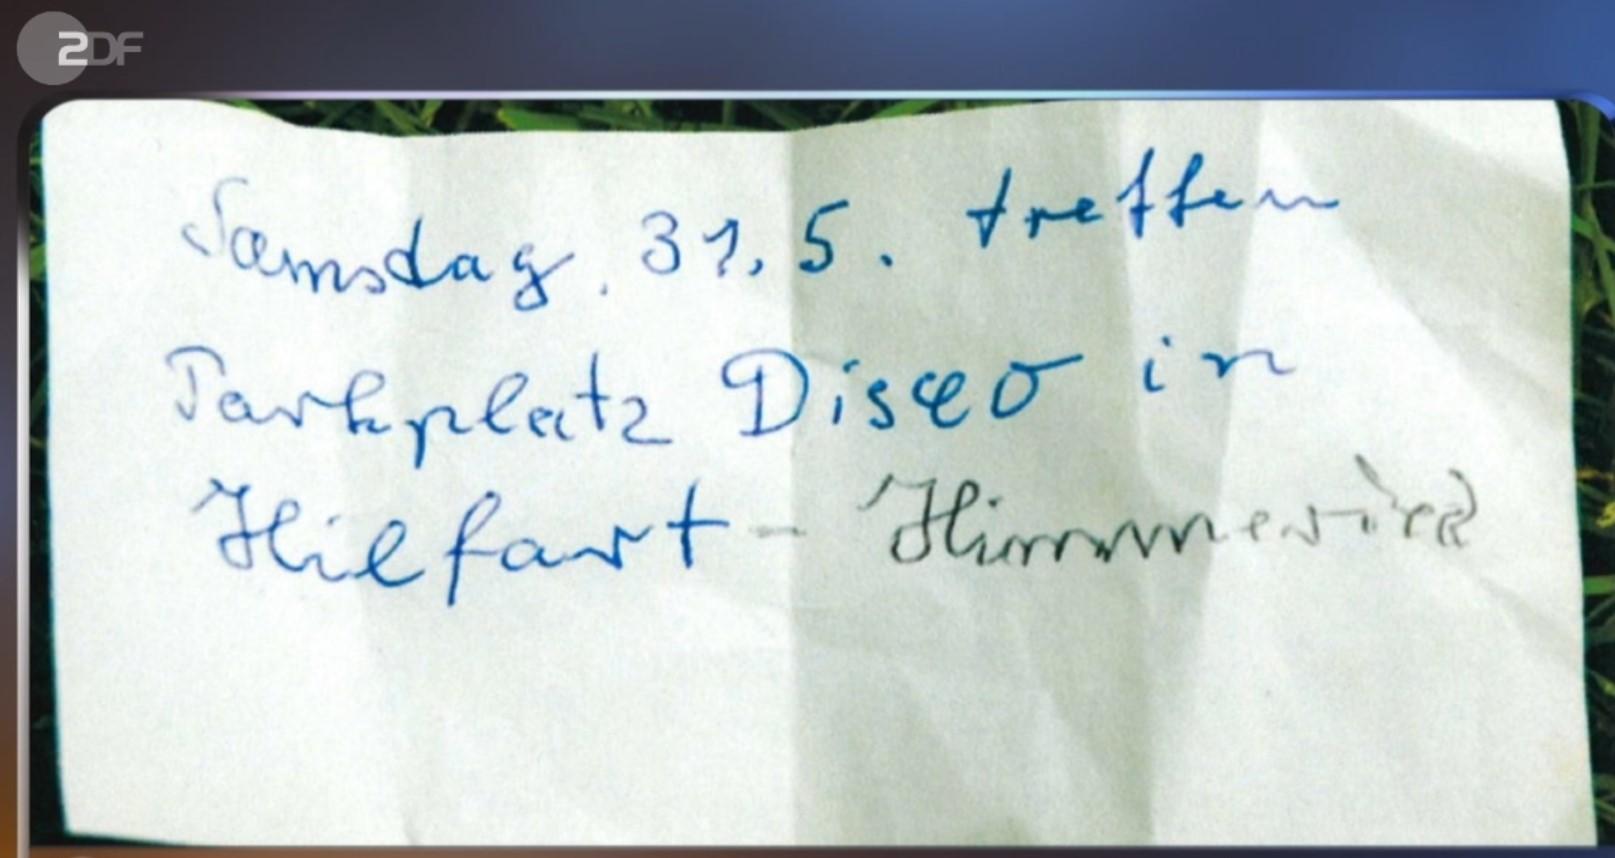 ZDF
Samsdag. 31.5. treffen
Parkplatz Disco in
Hilfart - Himmerich